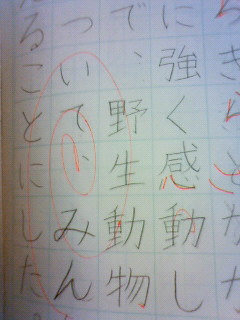 らきらとか
に強く感動し
で、野生動物
ついて、みん
ることにした。